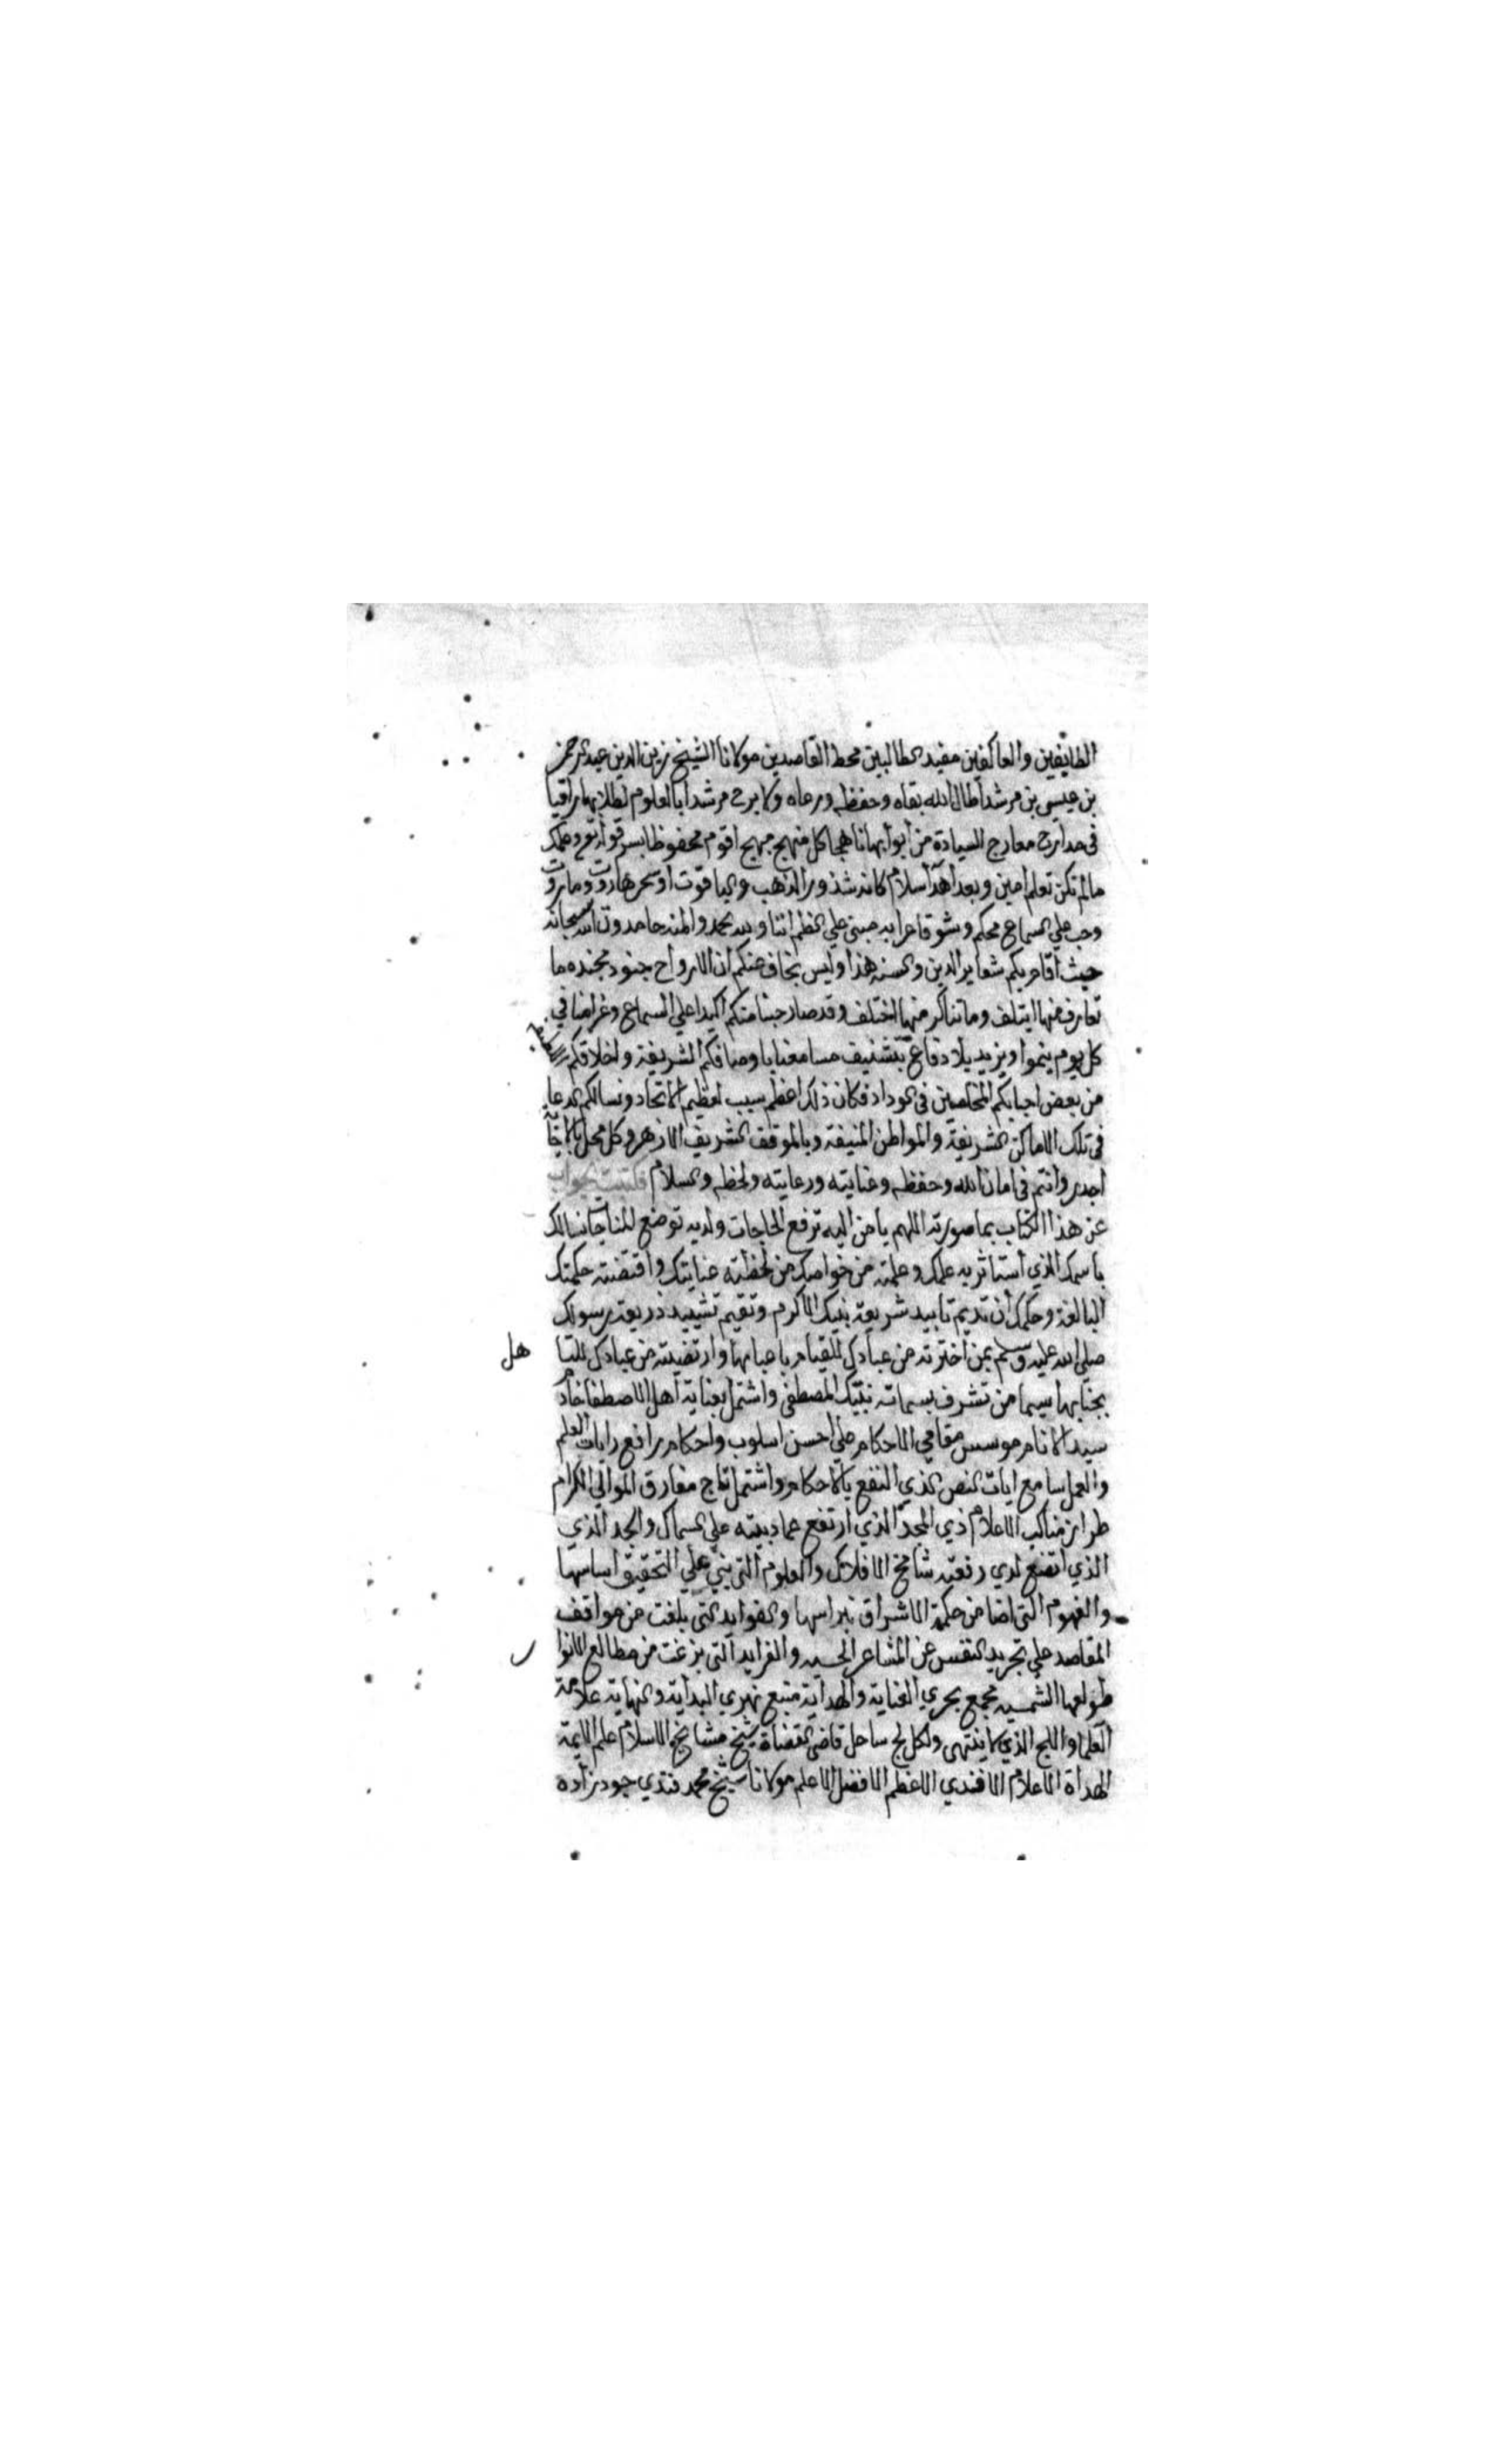 الطايفين والعاكفين مفيد الطالبين محط القاصدين مولانا الشيخ زين الدين عبد الرحمن
بن عيسى بن مرشد أطال الله بقاه وحفظه ورعاه ولا برح مرشدا بالعلوم لطلابها راقيا
في مدارج معارج السيادة من أبوابها ناهجا كل منهج اقوم محفوظا بسر قوله تع وعلمك
مالم تكن تعلم امين وبعد اهدآ سلام كانه شذور الذهب والياقوت او سحر هاروت وماروت
وحب علي السماع محكم وشوق مبني علي انتا ولله الحمد والمنه حامدون الله سبحانه
حيث أقام بكم شعاير الدين والسنه هذا وليس بخاف عنكم ان الارواح جنود مجنده ما
تعارف منها ايتلف وما تناكر منها اختلف وقد صار حبنا منكم اكيدا علي السماع وغرامنا في
كل يوم ينموا ويزيد بلا دفاع بتشنيف مسامعنا باوصافكم الشريفة واخلاقكم اللطيفة
من بعض احبابكم المخلصين في الوداد فكان ذلك اعظم سبب لعظيم الاتحاد ونسالكم الدعا
في تلك الاماكن الشريفة والمواطن المنيفة وبالموقف الشريف الازهر وكل محل بالاجابة
اجدر وانتم في امان الله وحفظه وعنايته ورعايته ولحظه والسلام فكتبت الجواب
عن هذا الكتاب بما صورته اللهم يا من اليه ترفع الحاجات ولديه توضع المناجات نسالك
باسمك الذي أستاثر به علمك وعلمته من خواصك من لحظته عنايتك واقتضته حكمتك
البالغة وحكمك أن تديم تاييد شريعة نبيك الاكرم وتقيم تشييد ذريعة رسولك
صلى الله عليه وسلم بمن أخترته من عبادك للقيام باعبابها وارتضيته من عبادك للتا هل
بجنابها سيما من تشرف بسمات نبيك المصطفى واشتمل بعناية أهل الاصطفا خادم
سيد الانام موسس مقامي الاحكام علي أحسن اسلوب واحكام رافع رايات العلم
والعمل سامع ايات النص الذي النفع بالاحكام واشتمل تاج مفارق الموالي الكرام
طراز مناكب الاعلام ذي المجد الذي ارتفع عماد بيته علي السماك والجد الذي
الذي اتضع لدي رفعته شامخ الافلاك والعلوم التي بني علي التحقيق اساسها
والفهوم التي اضا من حكمة الاشراق نبراسها والفوايد التي بلغت من مواقف
المقاصد علي تجريد النفس عن المشاعر الحسيه والفرايد التي بزغت من مطالع الانوا ر
طوالعها الشمسيه مجمع بحري العناية والهداية منبع نهري البداية والنهاية علامة
العلما واللج الذي لا ينتهي ولكل لج ساحل قاضي القضاة شيخ مشايخ الاسلام علم الايمة
الهداة الاعلام الافندي الاعظم الافضل الاعلم مولانا شيخ محمد فندي جود زاده